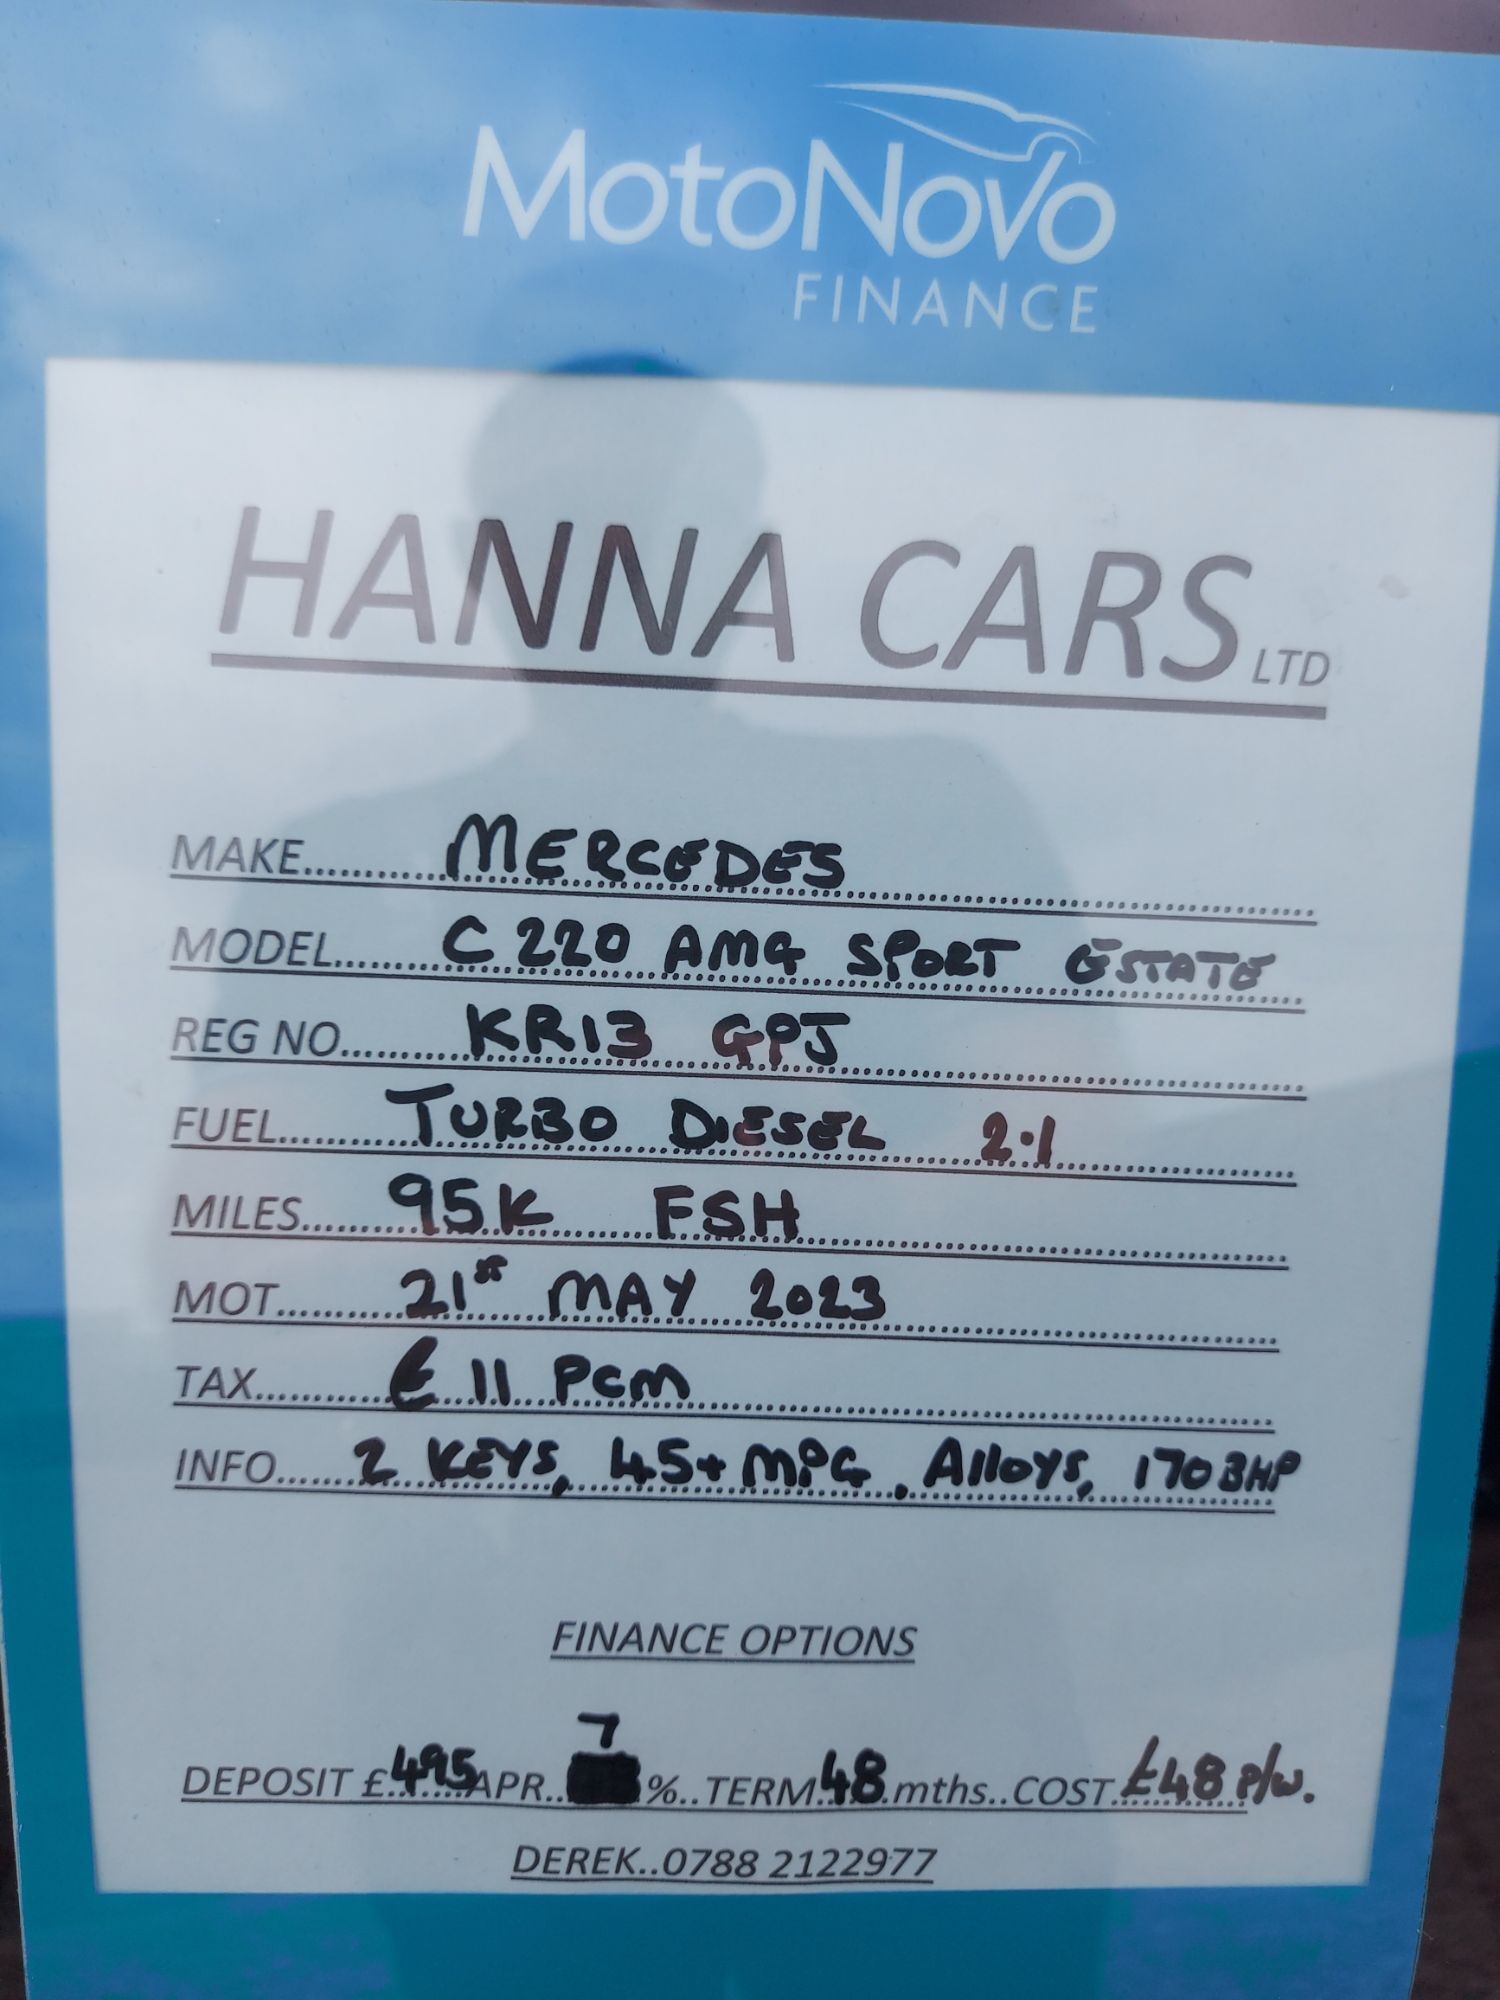 MotoNovo
FINANCE
HANNA CARS LTD
MAKE.......... MERCEDES
MODEL.......... C220 AMG SPORT ESTATE
REG NO.......... KR13 GPJ
FUEL.......... TURBO DIESEL 2.1
MILES.......... 95K FSH
MOT.......... 21st MAY 2023
TAX.......... £11 PCM
INFO.......... 2 KEYS, 45+ MPG, Alloys, 170 BHP
FINANCE OPTIONS
7
DEPOSIT £ 495 APR.. %.. TERM 48 mths.. COST £48 P/W.
DEREK..0788 2122977